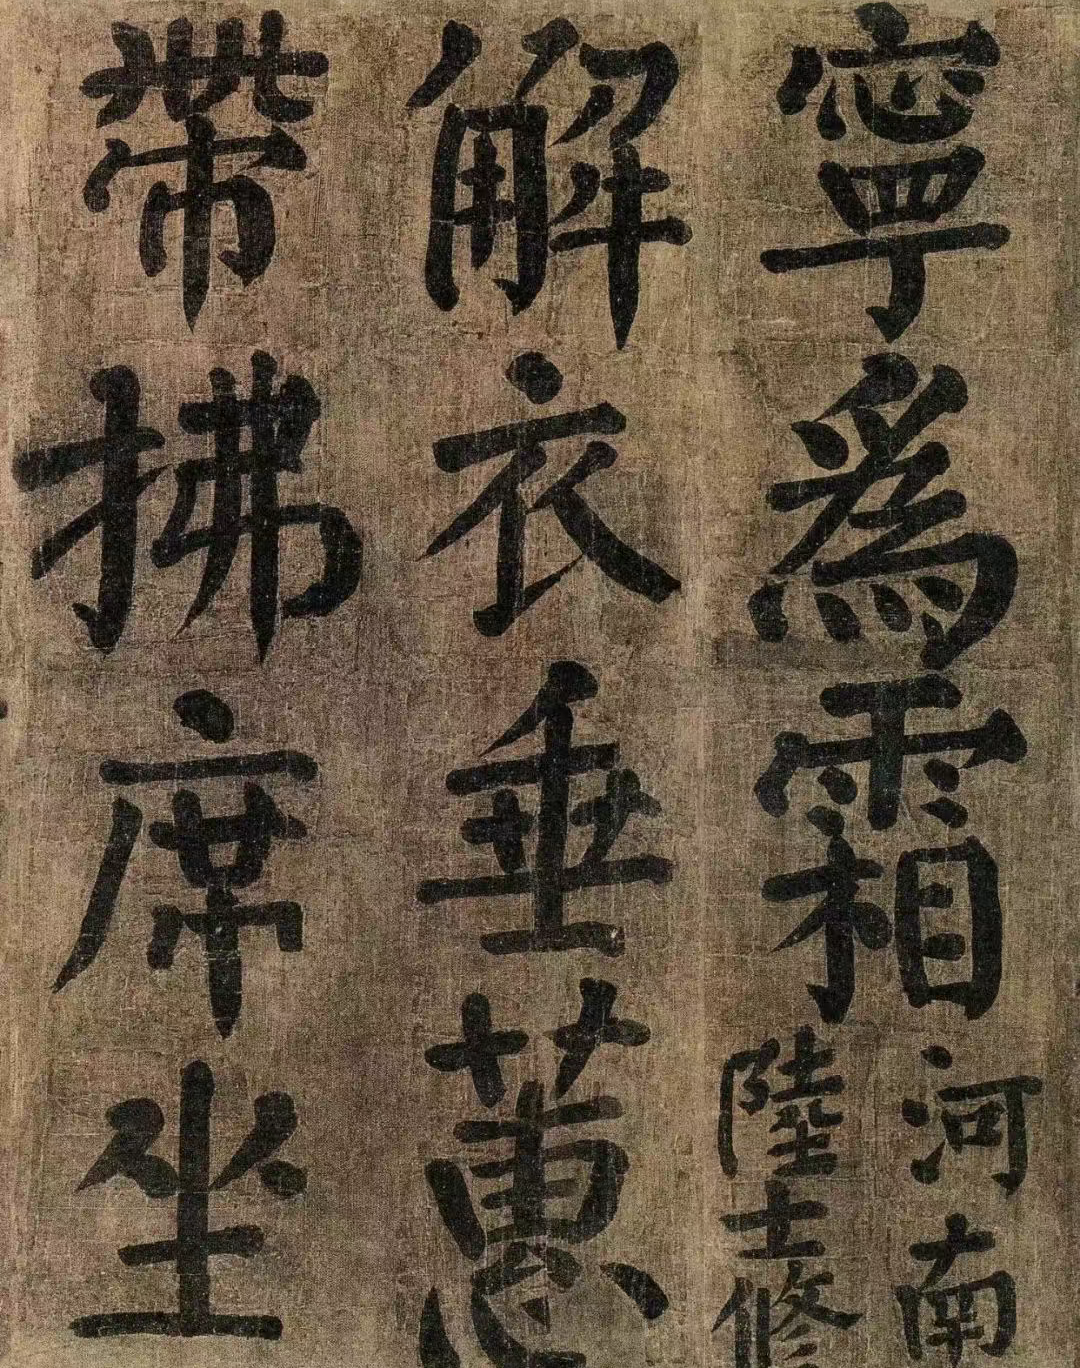 寧爲霜
河南
陸士修
解衣垂蕙
帶拂席坐